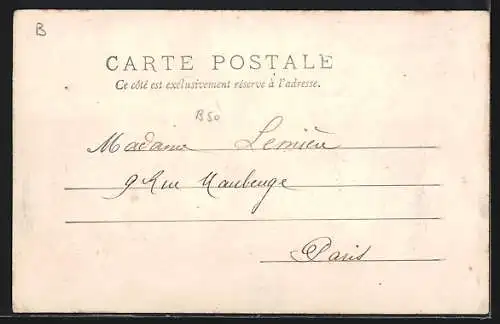 B
CARTE POSTALE
Ce côté est exclusivement réservé à l'adresse.
B50
Madame Lemière
9 Rue Maubeuge
Paris